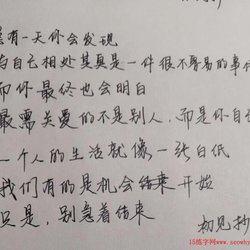 有一天你会发现
自己相处其实是一件很不容易的事
而你最终也会明白
最需关爱的不是别人，而是你自己
一个人的生活就像一张白纸
我们有的是机会结束 开始
只是，别急着结束
初见抄
15练字网www.scowhy